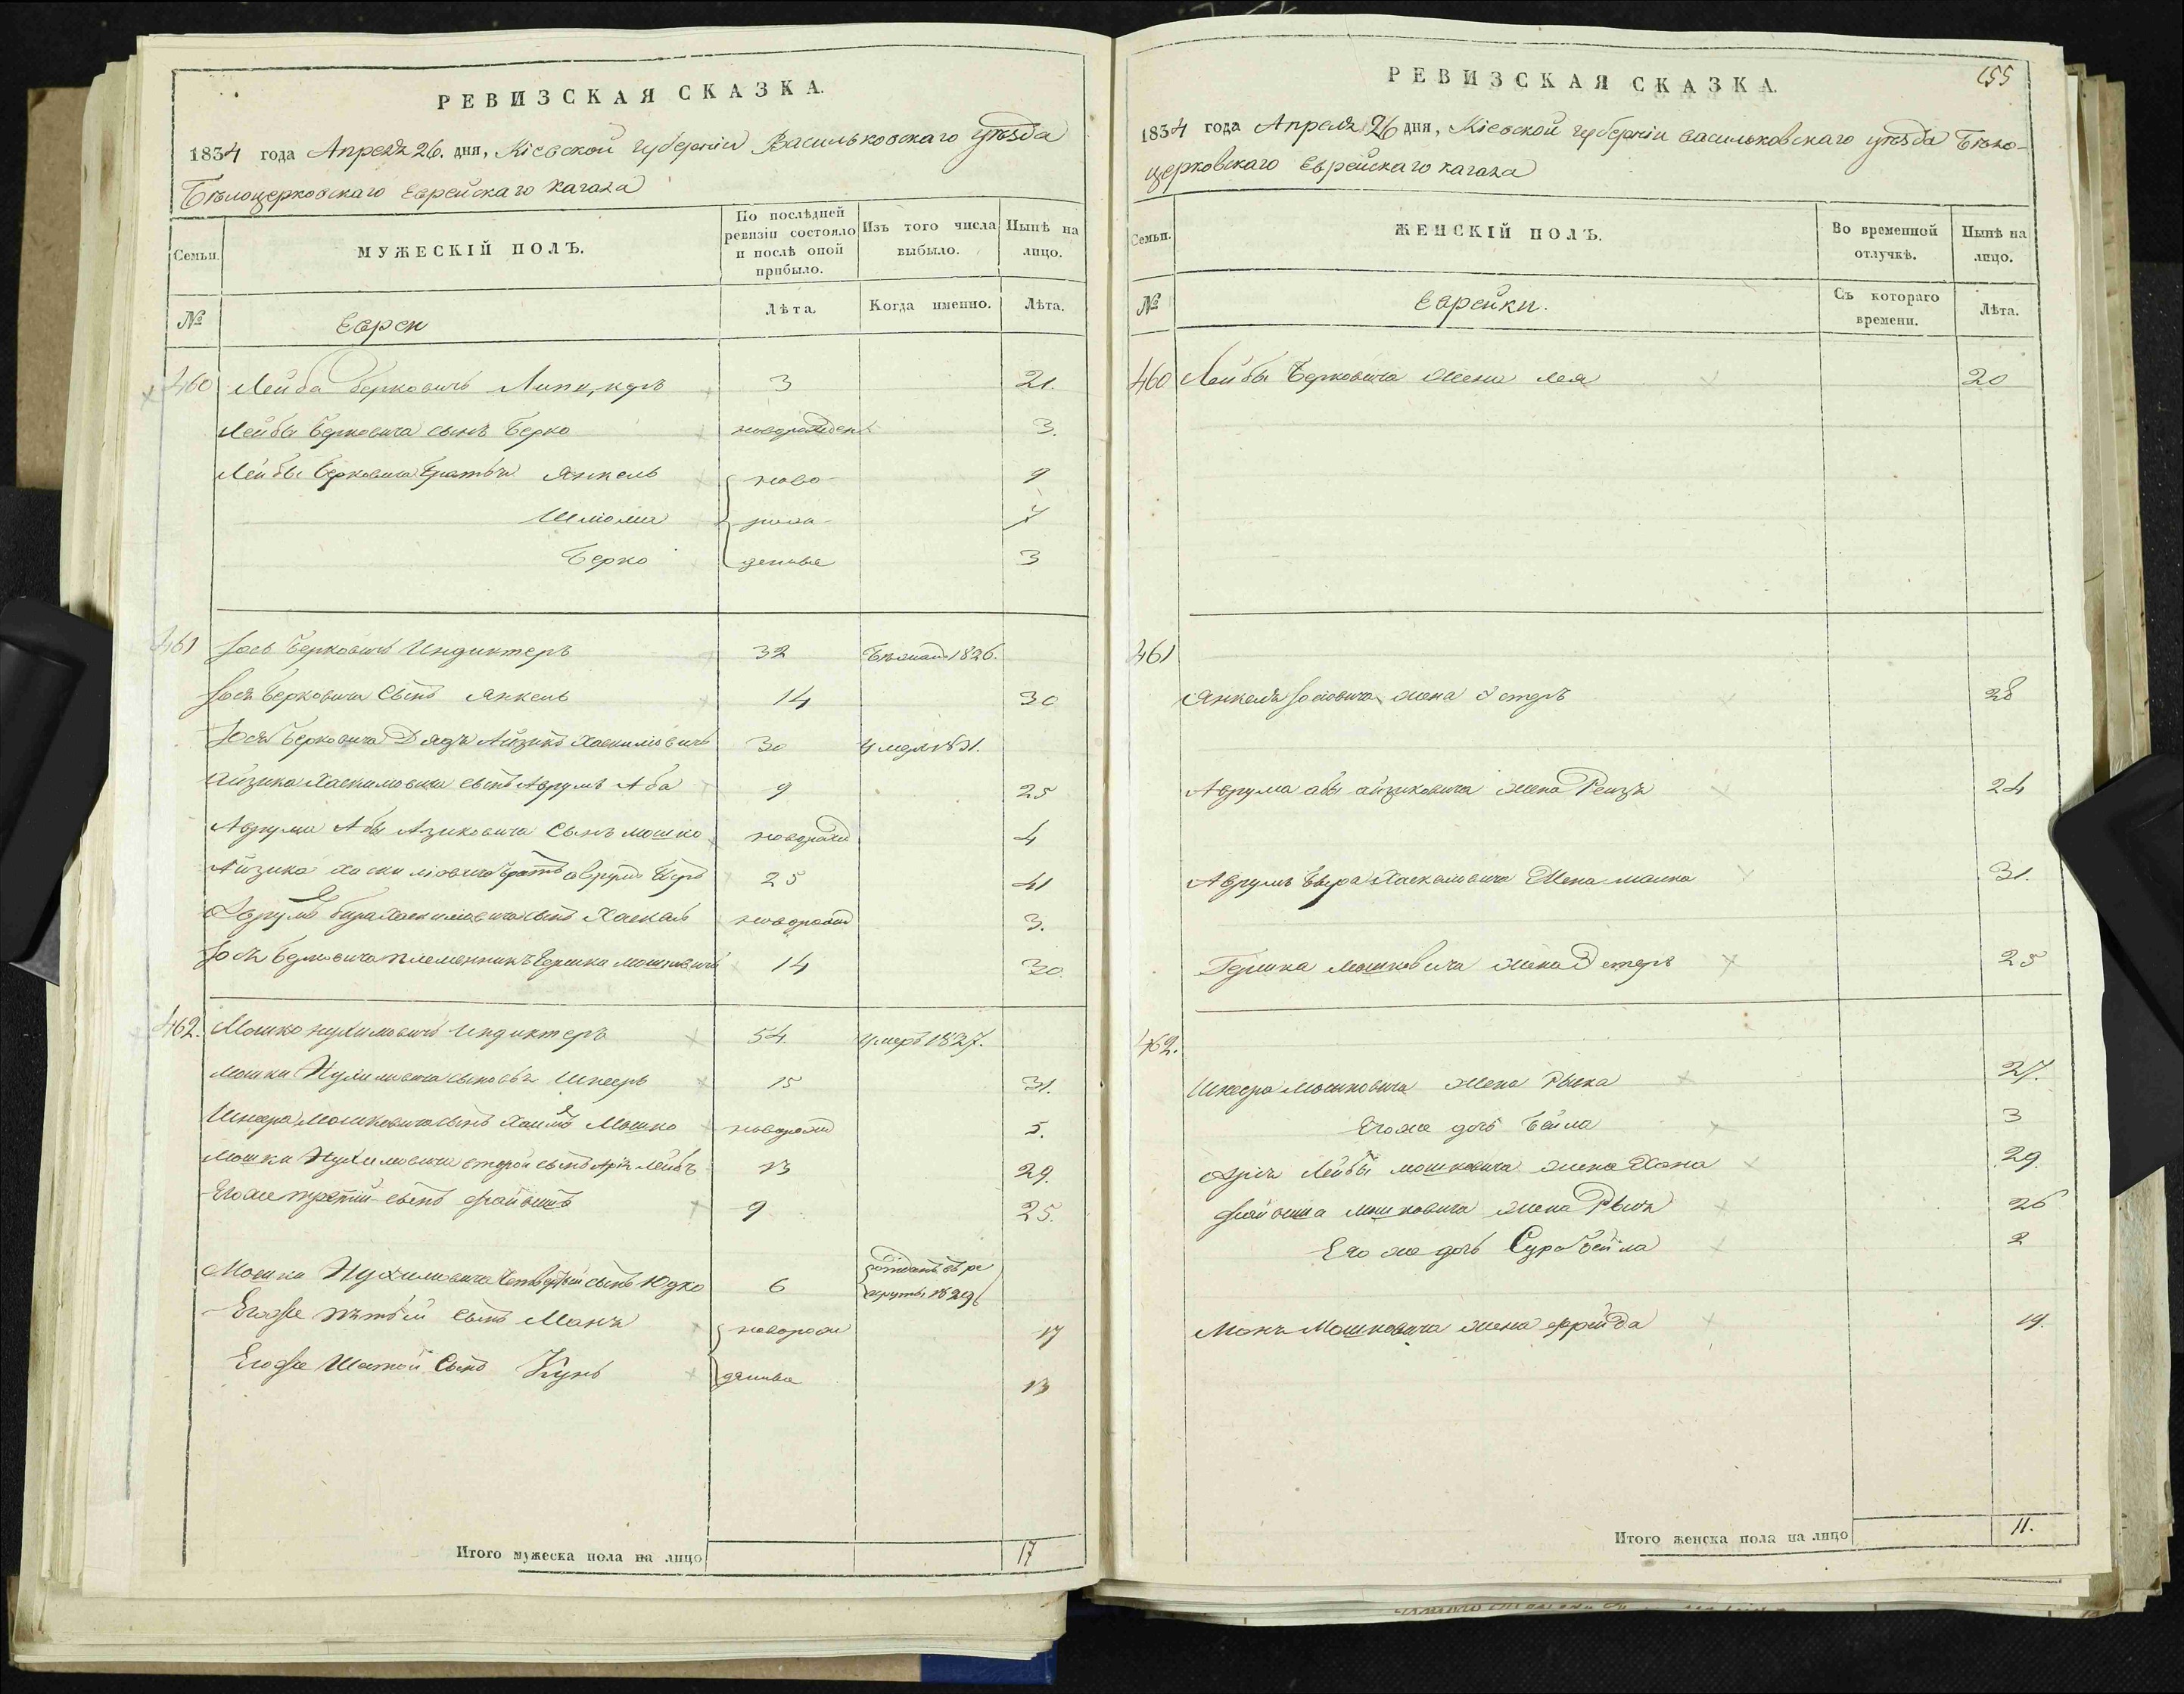 РЕВИЗСКАЯ СКАЗКА.
1834 года Апреля 26. дня, Кіевской губерніи Васильковскаго уѣзда
Бѣлоцерковскаго Еврейскаго кагала
Семьи.
МУЖЕСКІЙ ПОЛЪ.
По послѣдней ревизіи состояло и послѣ оной прибыло.
Изъ того числа выбыло.
Нынѣ на лицо.
№
Евреи
Лѣта.
Когда именно.
Лѣта.
460 Лейба Берковичъ 3 21.
Лейбы Берковича сынъ Берко новорожден 3.
Лейбы Берковича братья Янкель ново- 9
Шліома рож- 7
Берко денные 3
461 Іось Берковичъ Индиктеръ 32 Бѣжалъ 1826.
Іося Берковича сынъ Янкель 14 30
Іося Берковича Дядя Айзикъ Хаскиліовичъ 30 умеръ 1831.
Айзика Хаскиліовича сынъ Аврумъ Аба 9 25
Аврума Абы Азиковича Сынъ Мошко новорожд 4
Айзика Хаскиліовича братъ Аврумъ Беръ 25 41
Аврумъ Бера Хаскиліовича сынъ Хаскель новорожд 3.
Іося Берковича племенникъ Гершка Мошковичъ 14 30.
462. Мошко Нухимовичъ Индиктеръ 54. умеръ 1827.
Мошки Нухимовича сыновья Шнееръ 15 31.
Шнеера Мошковича сынъ Хаимъ Мошко новорожд 5.
Мошки Нухимовича вторый сынъ Арія Лейбъ 13 29.
Егоже третій сынъ Файвишъ 9 25.
Мошки Нухимовича Четвертый сынъ Юдко 6 отданъ въ рекруты 1829
Егоже пятый сынъ Маня новорож 17
Егоже Шестой Сынъ Кунъ денные 13
Итого мужеска пола на лицо 17
РЕВИЗСКАЯ СКАЗКА.
155
1834 года Апреля 26 дня, Кіевской губерніи васильковскаго уѣзда Бѣло-
церковскаго Еврейскаго кагала
Семьи.
ЖЕНСКІЙ ПОЛЪ.
Во временной отлучкѣ.
Нынѣ на лицо.
№
Еврейки.
Съ котораго времени.
Лѣта.
460 Лейбы Берковича жена Лея 20
461
Янкеля Іосіовича жена Эстеръ 28
Аврума Абы Айзиковича жена Рейзя 24
Аврумъ Бера Хаскеліовича Жена 31.
Гершка Мошковича жена Эстеръ 25
462.
Шнеера Мошковича жена 27.
Егоже дочь Бейла 3
Арія Лейбы Мошковича жена Хана 29.
Файвиша Мошковича жена 26
Его же дочь Сура Бейла 2
Маня Мошковича жена Фрейда 19.
Итого женска пола на лицо 11.